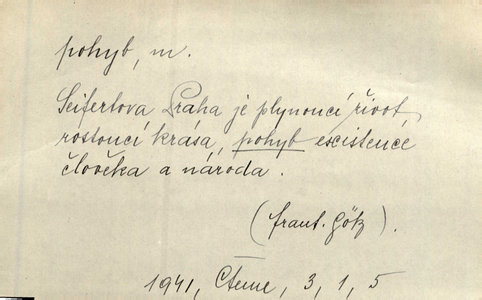 pohyb, m.
Seifertova Praha je plynoucí život,
rostoucí krása, pohyb existence
člověka a národa.
(Frant. Götz).
1941, Čteme, 3, 1, 5